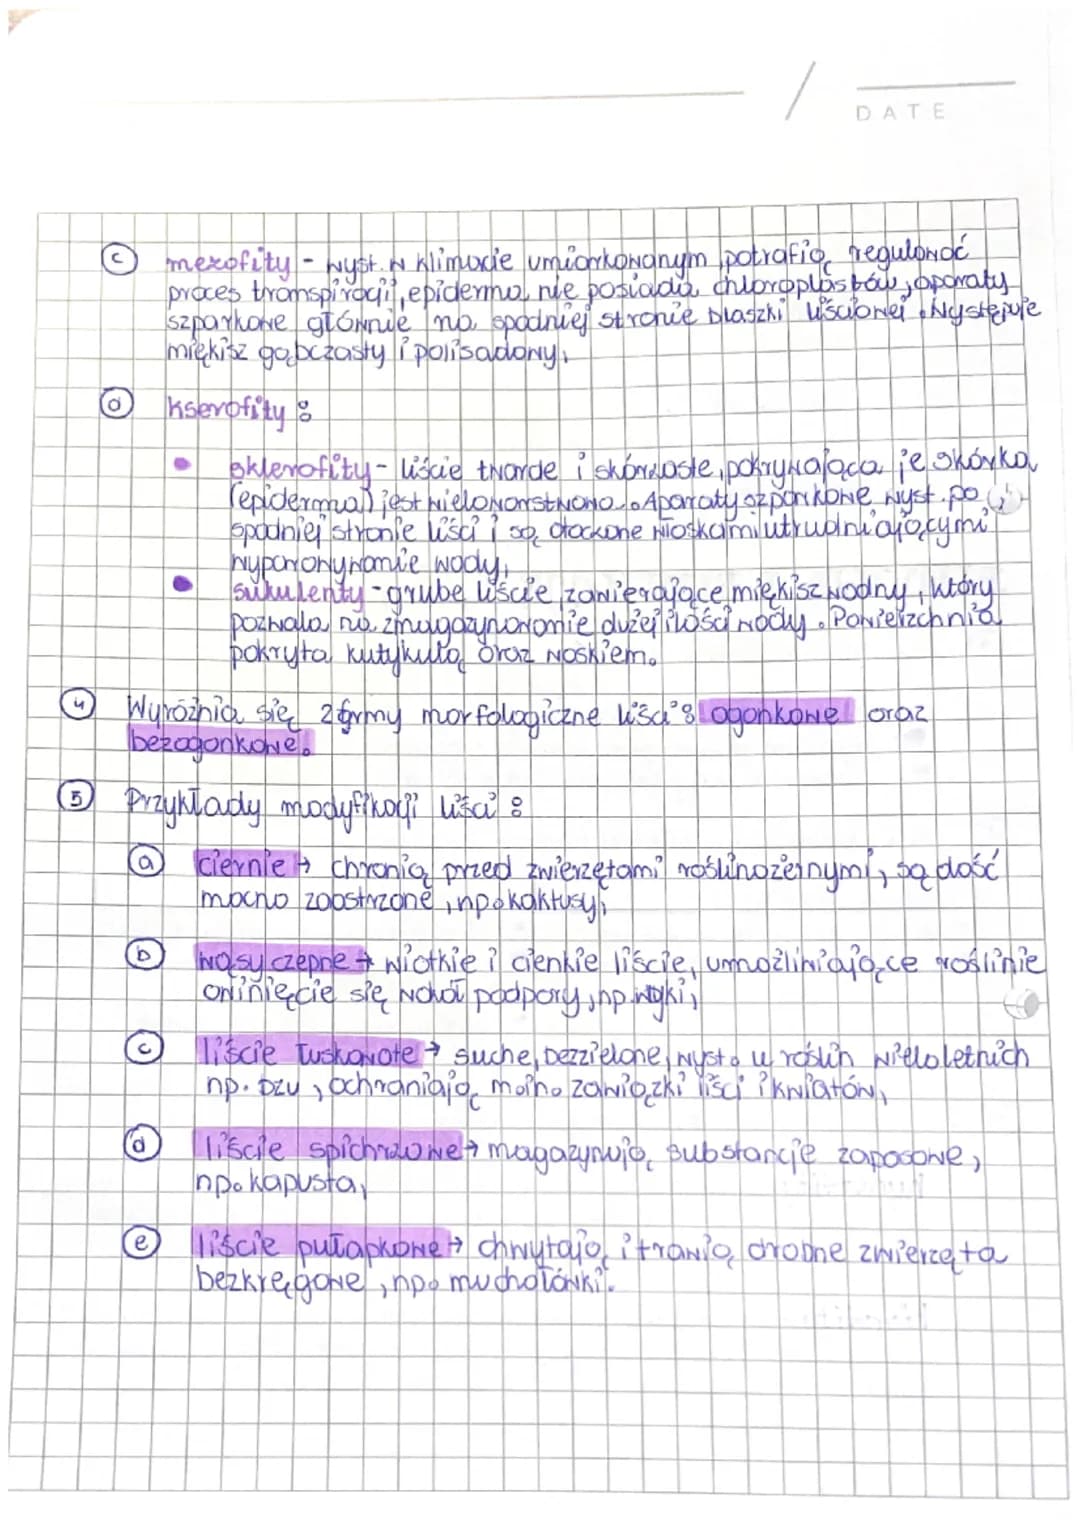 DATE
c mezofity - wyst. w klimacie umiarkowanym, potrafią regulować
proces transpiracji, epiderma nie posiada chloroplastów, aparaty
szparkowe głównie na spodniej stronie blaszki liściowej. Występuje
miękisz gąbczasty i palisadowy,
d kserofity:
• sklerofity - liście twarde i skórzaste, pokrywająca je skórka
(epiderma) jest wielowarstwowa. Aparaty szparkowe wyst. po
spodniej stronie liści i są otoczone włoskami utrudniającymi
wyparowywanie wody,
• sukulenty - grube liście zawierające miękisz wodny, który
pozwala na zmagazynowanie dużej ilości wody. Powierzchnia
pokryta kutykulą oraz woskiem.
4 Wyróżnia się 2 formy morfologiczne liści: ogonkowe oraz
bezogonkowe.
5 Przykłady modyfikacji liści:
a ciernie → chronią przed zwierzętami roślinożernymi, są dość
mocno zaostrzone, np. kaktusy,
b wąsy czepne → wiotkie i cienkie liście, umożliwiające roślinie
owinięcie się wokół podpory, np. wyki,
c liście łuskowate → suche, bezzielone, wyst. u roślin wieloletnich
np. bzu, ochraniają zawiązki liści i kwiatów,
d liście spichrzowe → magazynują substancje zapasowe,
np. kapusta,
e liście pułapkowe → chwytają i trawią drobne zwierzęta
bezkręgowe, np. muchołówki.